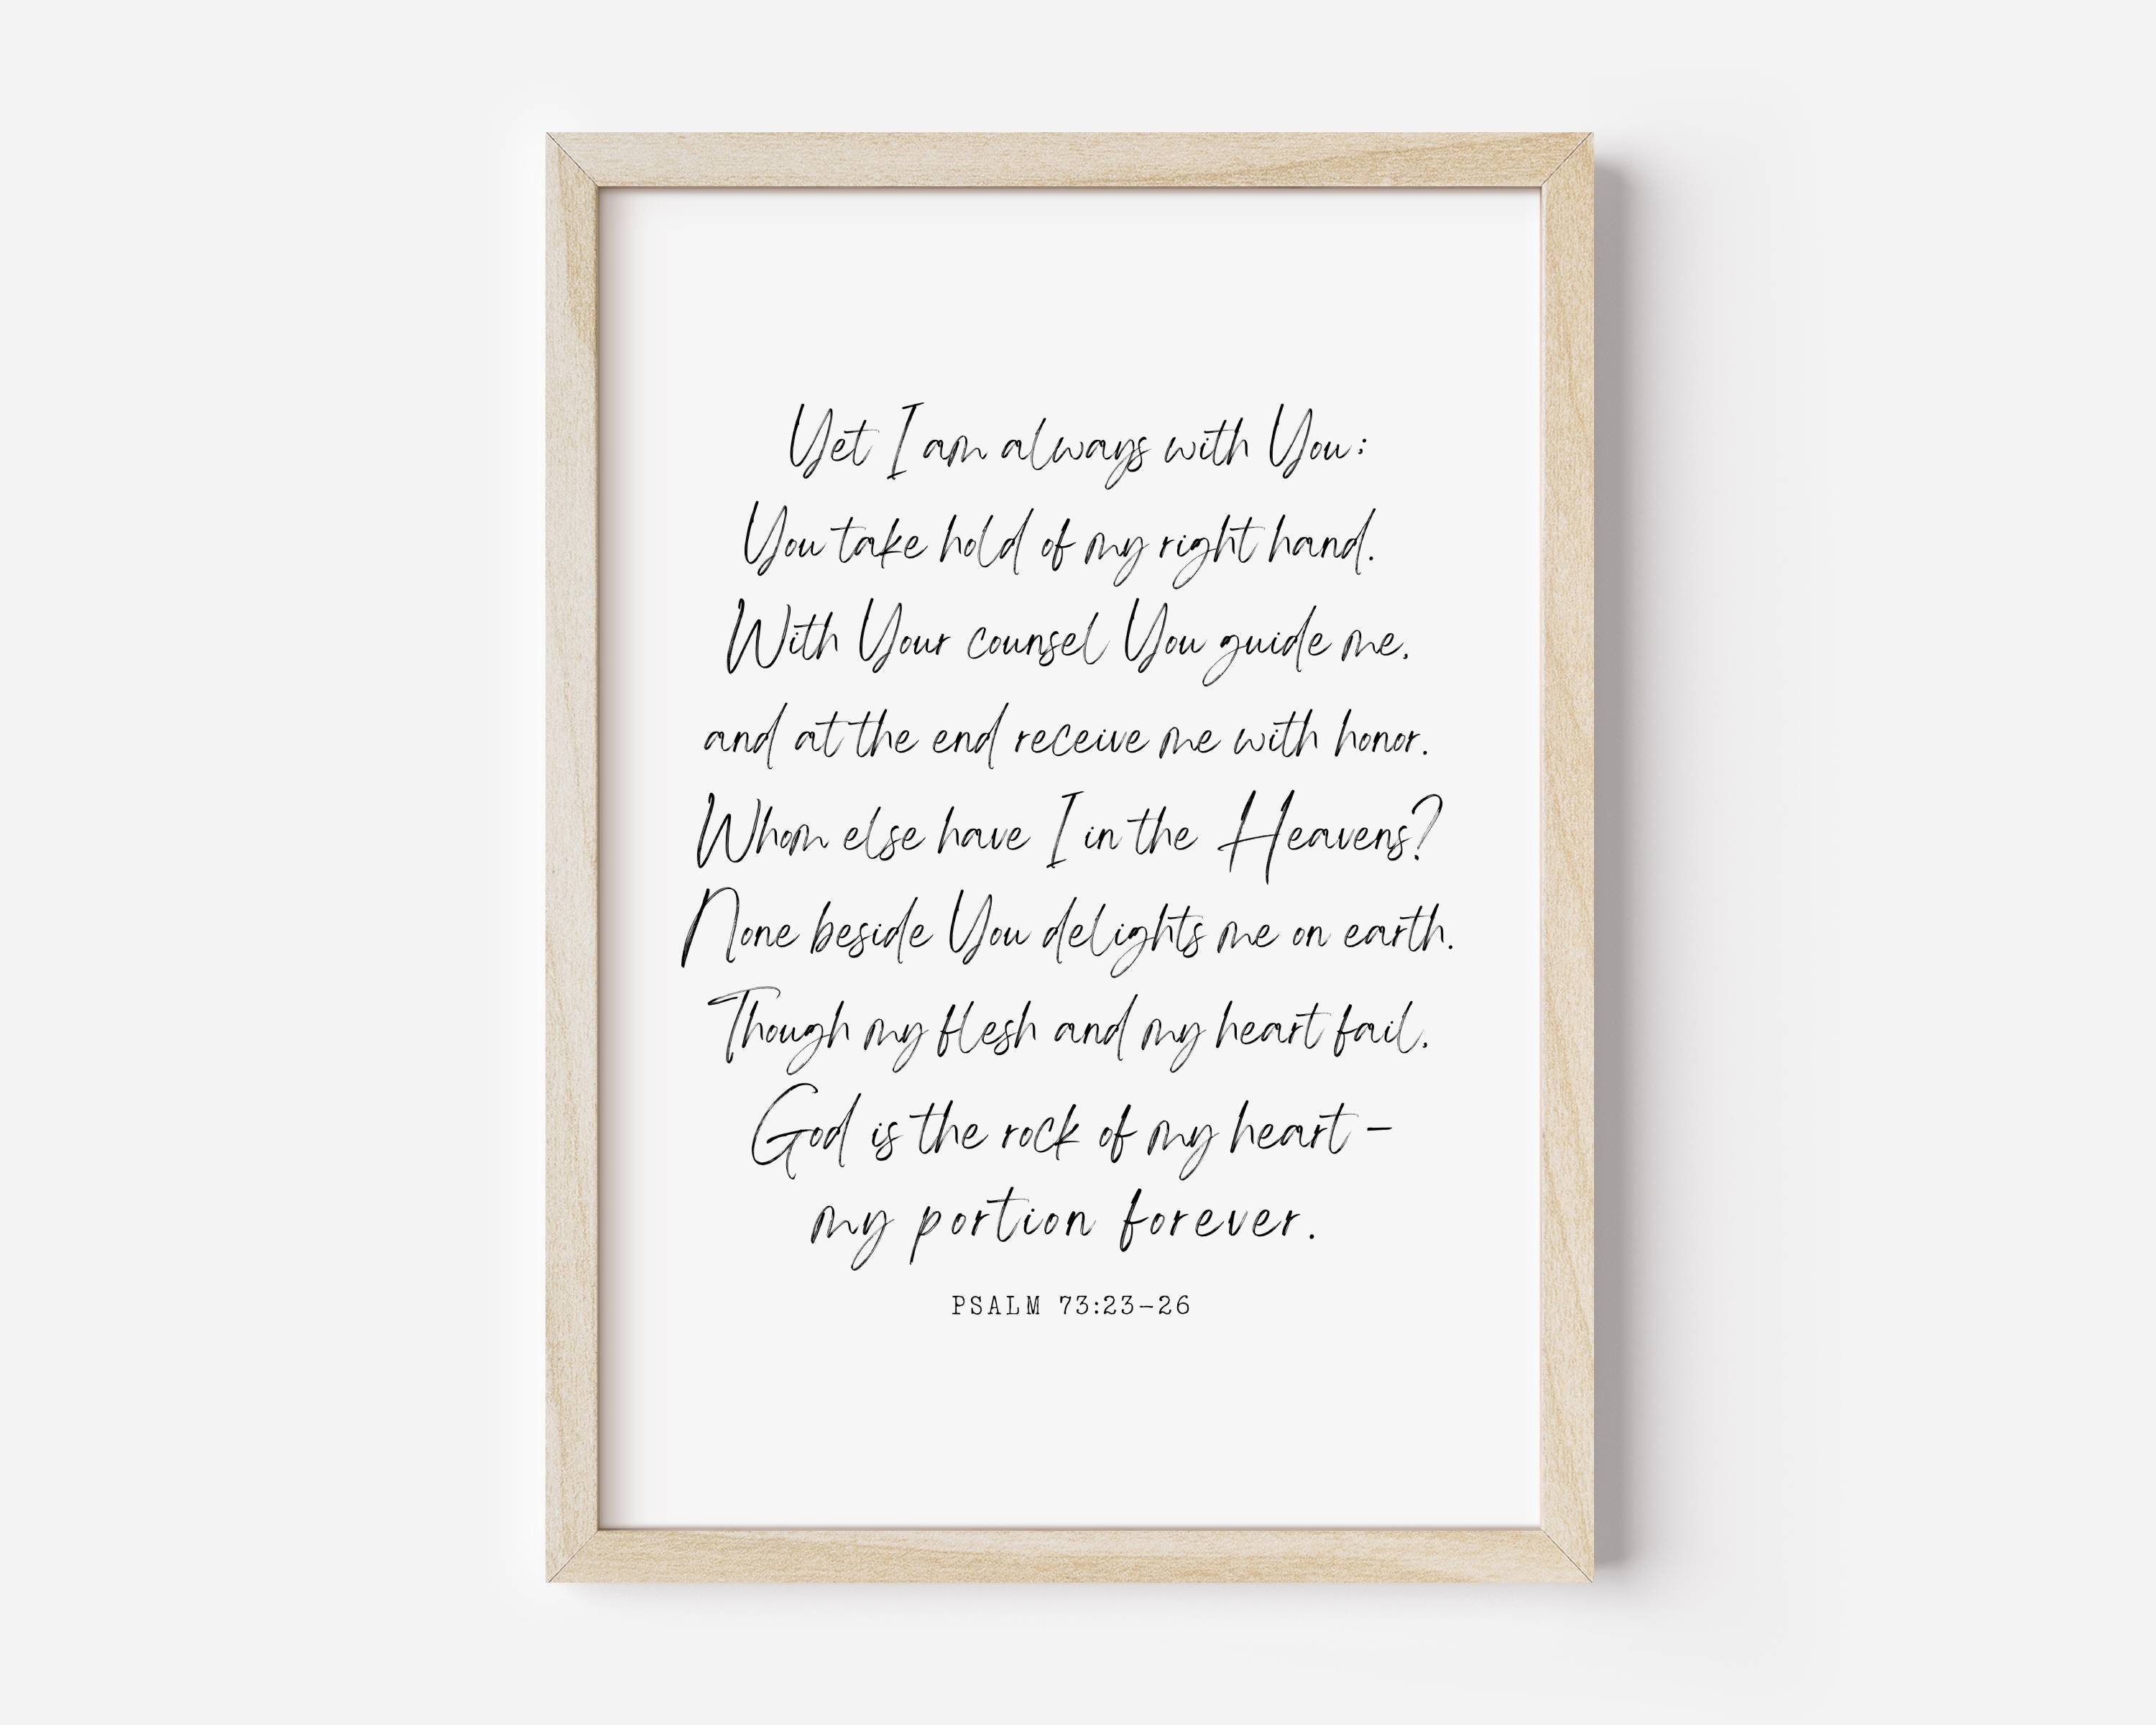 Yet I am always with You:
You take hold of my right hand.
With Your counsel You guide me,
and at the end receive me with honor.
Whom else have I in the Heavens?
None beside You delights me on earth.
Though my flesh and my heart fail,
God is the rock of my heart –
my portion forever.
PSALM 73:23–26